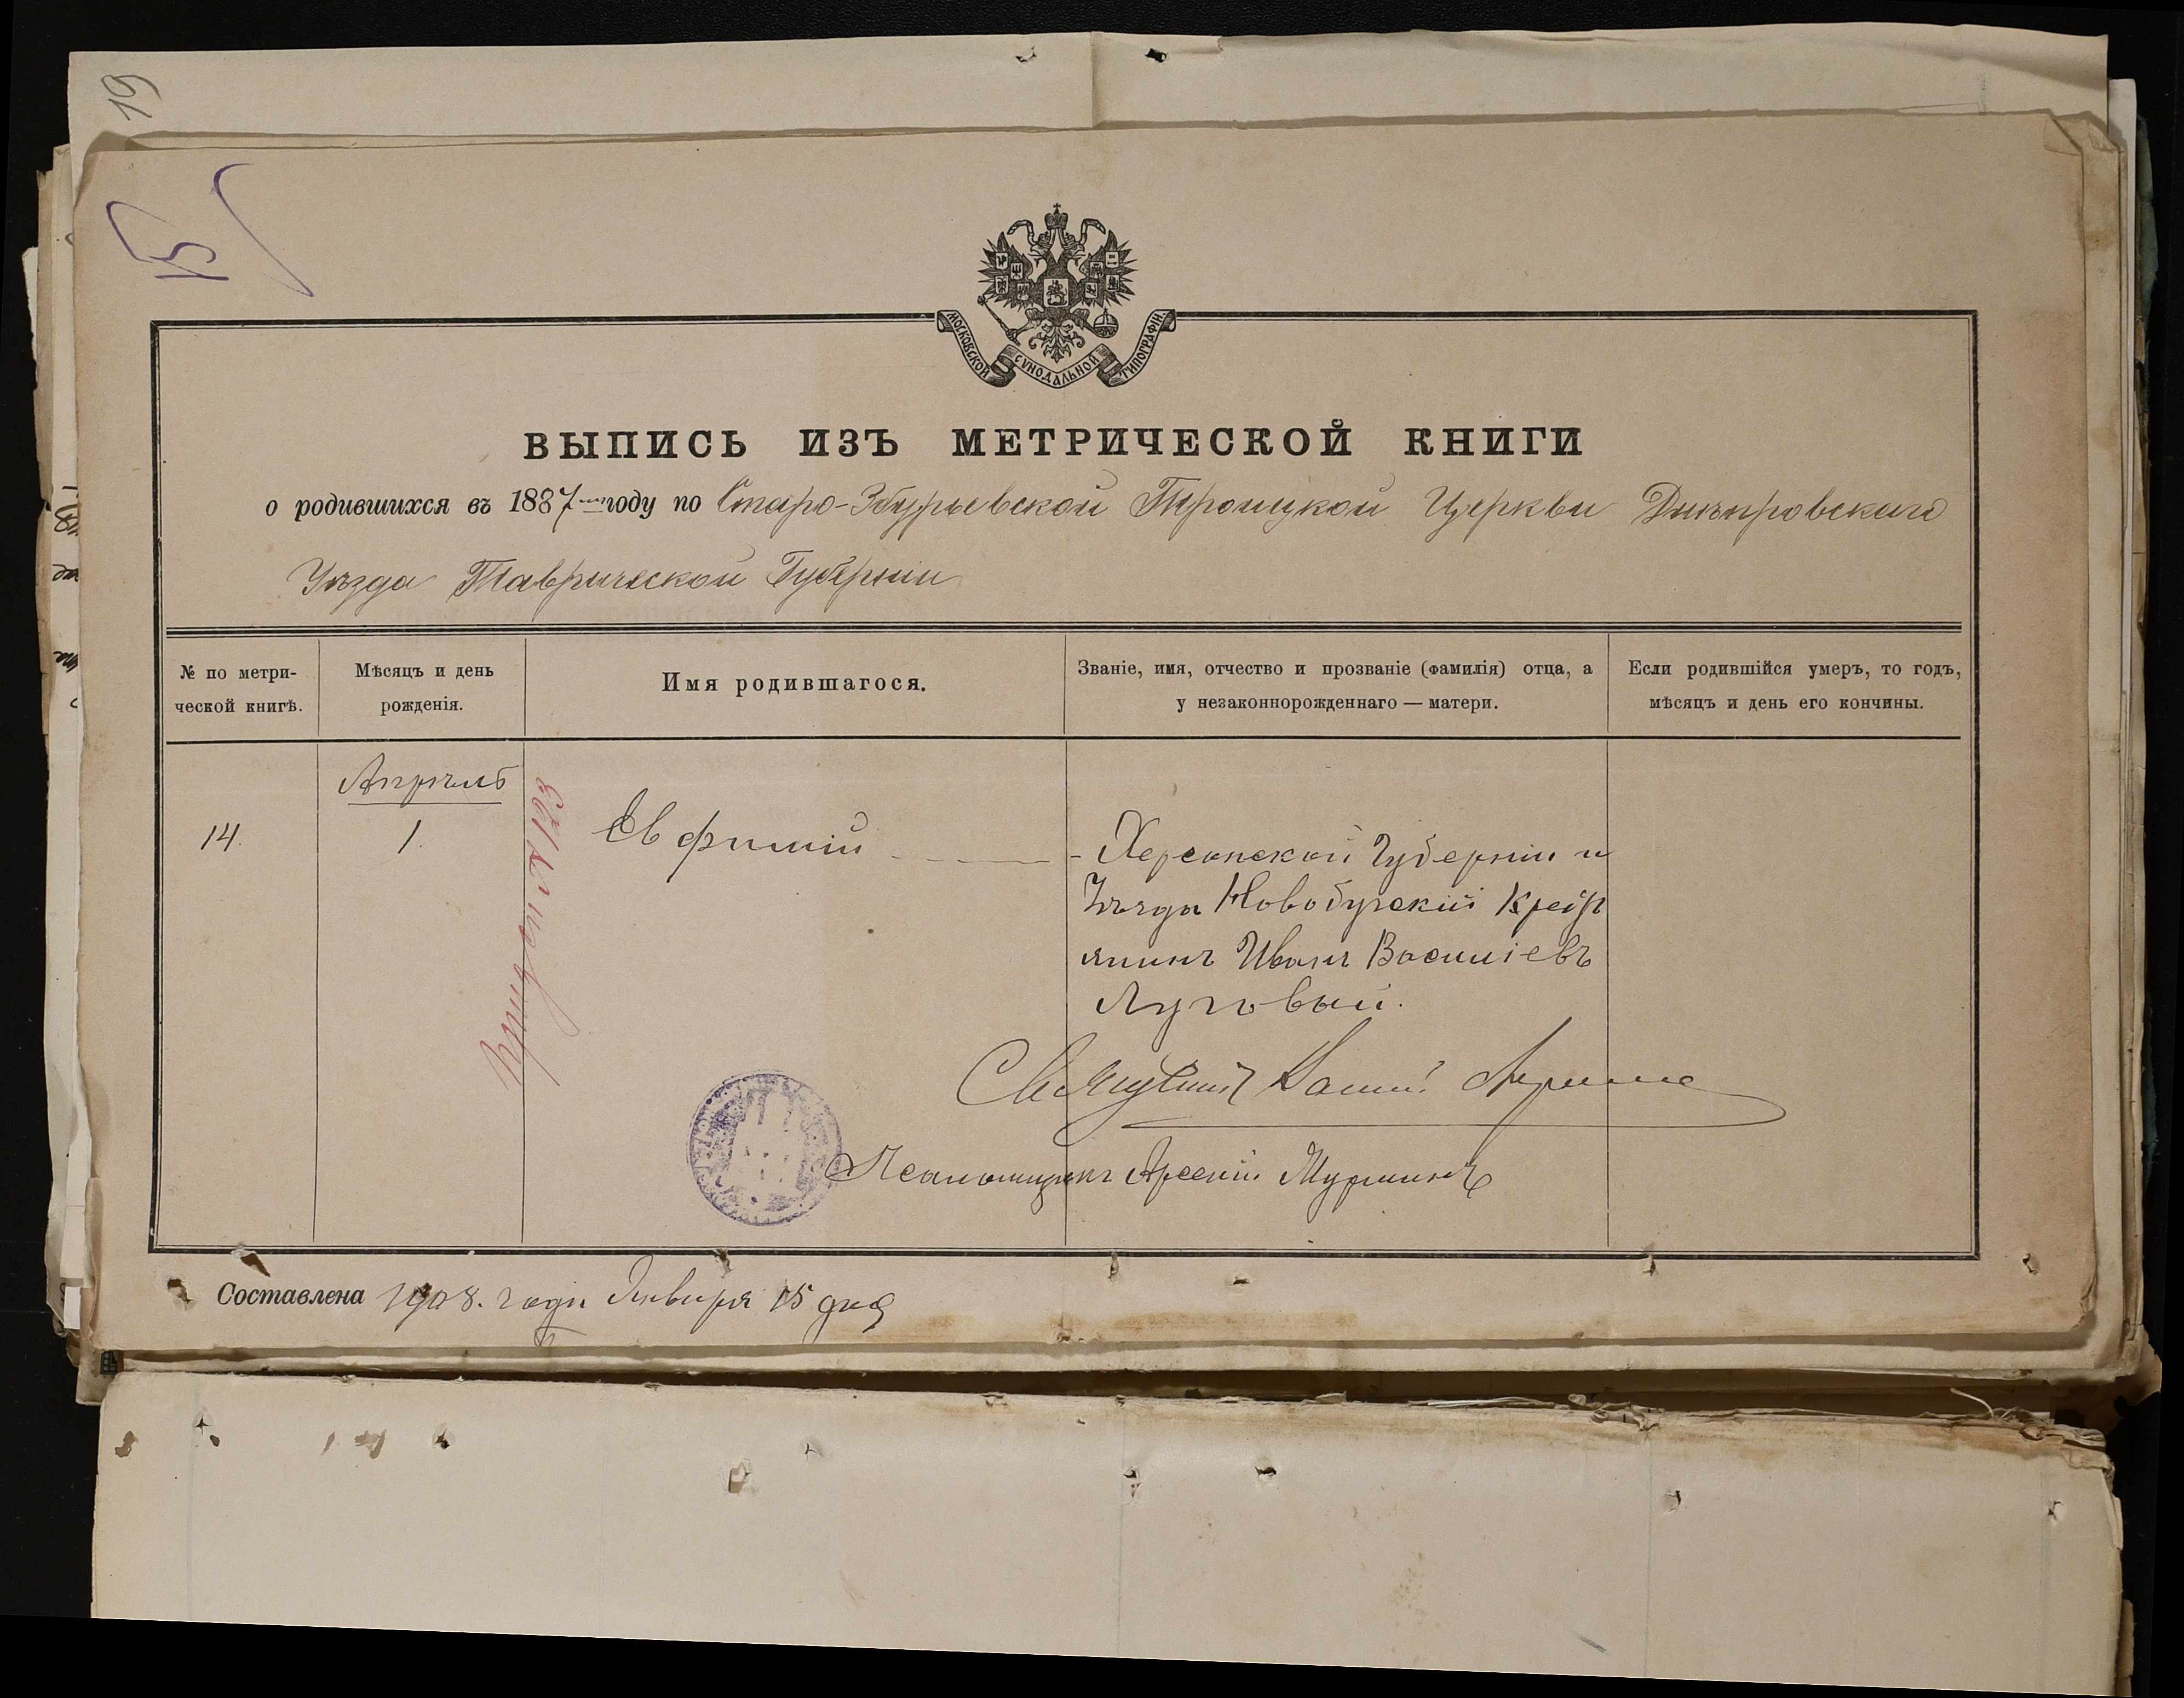 19
15
МОСКОВСКОЙ СѴНОДАЛЬНОЙ ТИПОГРАФІИ
ВЫПИСЬ ИЗЪ МЕТРИЧЕСКОЙ КНИГИ
о родившихся въ 1887 году по Старо-Збурьевской Троицкой Церкви Днѣпровскаго
Уѣзда Таврической Губерніи
№ по метри-
ческой книгѣ.
Мѣсяцъ и день
рожденія.
Имя родившагося.
Званіе, имя, отчество и прозваніе (фамилія) отца, а
у незаконнорожденнаго — матери.
Если родившійся умеръ, то годъ,
мѣсяцъ и день его кончины.
Апрѣль
14. 1. Евфимій
Херсонской Губерніи и
Уѣзда Новобугскій Крест
янинъ Иванъ Василіевъ
Луговый.
Псаломщикъ Арсеній
Составлена 1908. года Января 15 дня